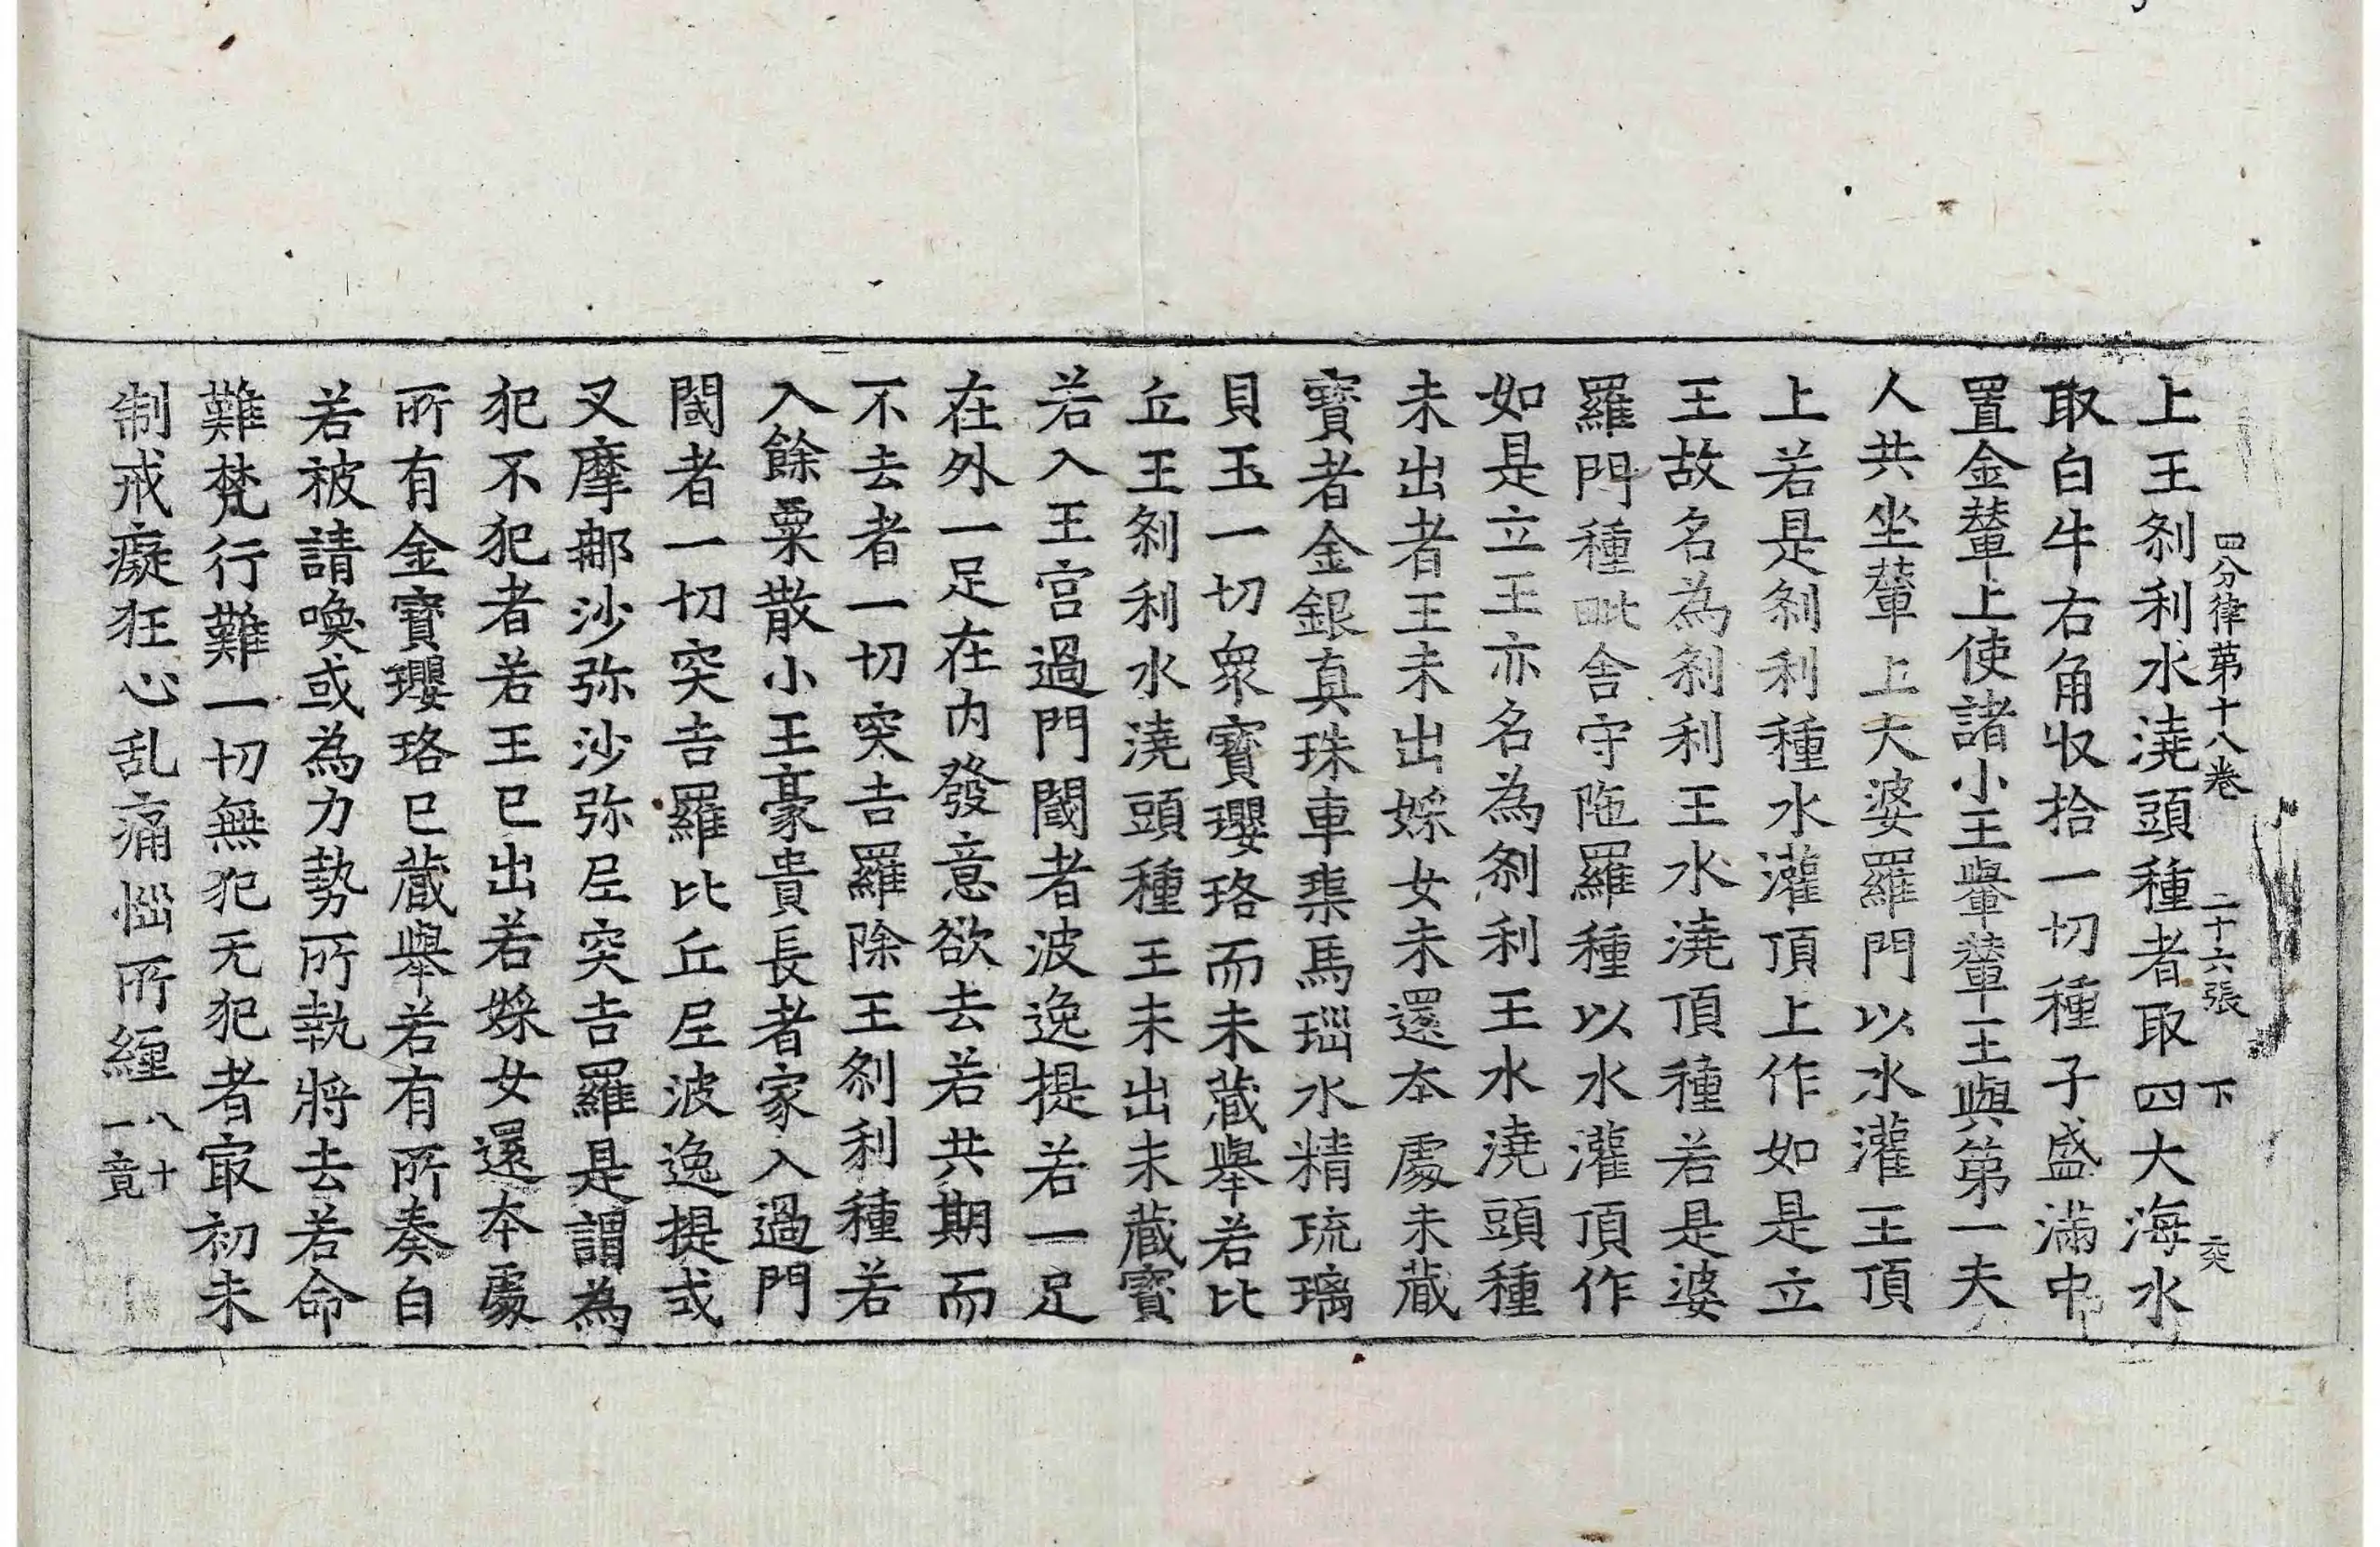 四分律第十八卷 二十六張 下 突
上王刹利水澆頭種者取四大海水
取白牛右角收拾一切種子盛滿中
置金輦上使諸小王轝輦王與第一夫
人共坐輦上大婆羅門以水灌王頂
上若是刹利種水灌頂上作如是立
王故名為刹利王水澆頂種若是婆
羅門種毗舍守陁羅種以水灌頂作
如是立王亦名為刹利王水澆頭種
未出者王未出婇女未還本處未蔵
寶者金銀真珠車𤦲馬瑙水精琉璃
貝玉一切衆寶瓔珞而未蔵舉若比
丘王刹利水澆頭種王未出未蔵寶
若入王宫過門閾者波逸提若一足
在外一足在内發意欲去若共期而
不去者一切突吉羅除王刹利種若
入餘粟散小王豪貴長者家入過門
閾者一切突吉羅比丘𡰱波逸提或
叉摩那沙弥沙弥𡰱突吉羅是謂為
犯不犯者若王已出若婇女還本處
所有金寶瓔珞已蔵舉若有所奏白
若被請喚或為力勢所執將去若命
難梵行難一切無犯无犯者㝡初未
制戒癡狂心乱痛惱所纏 八十一竟